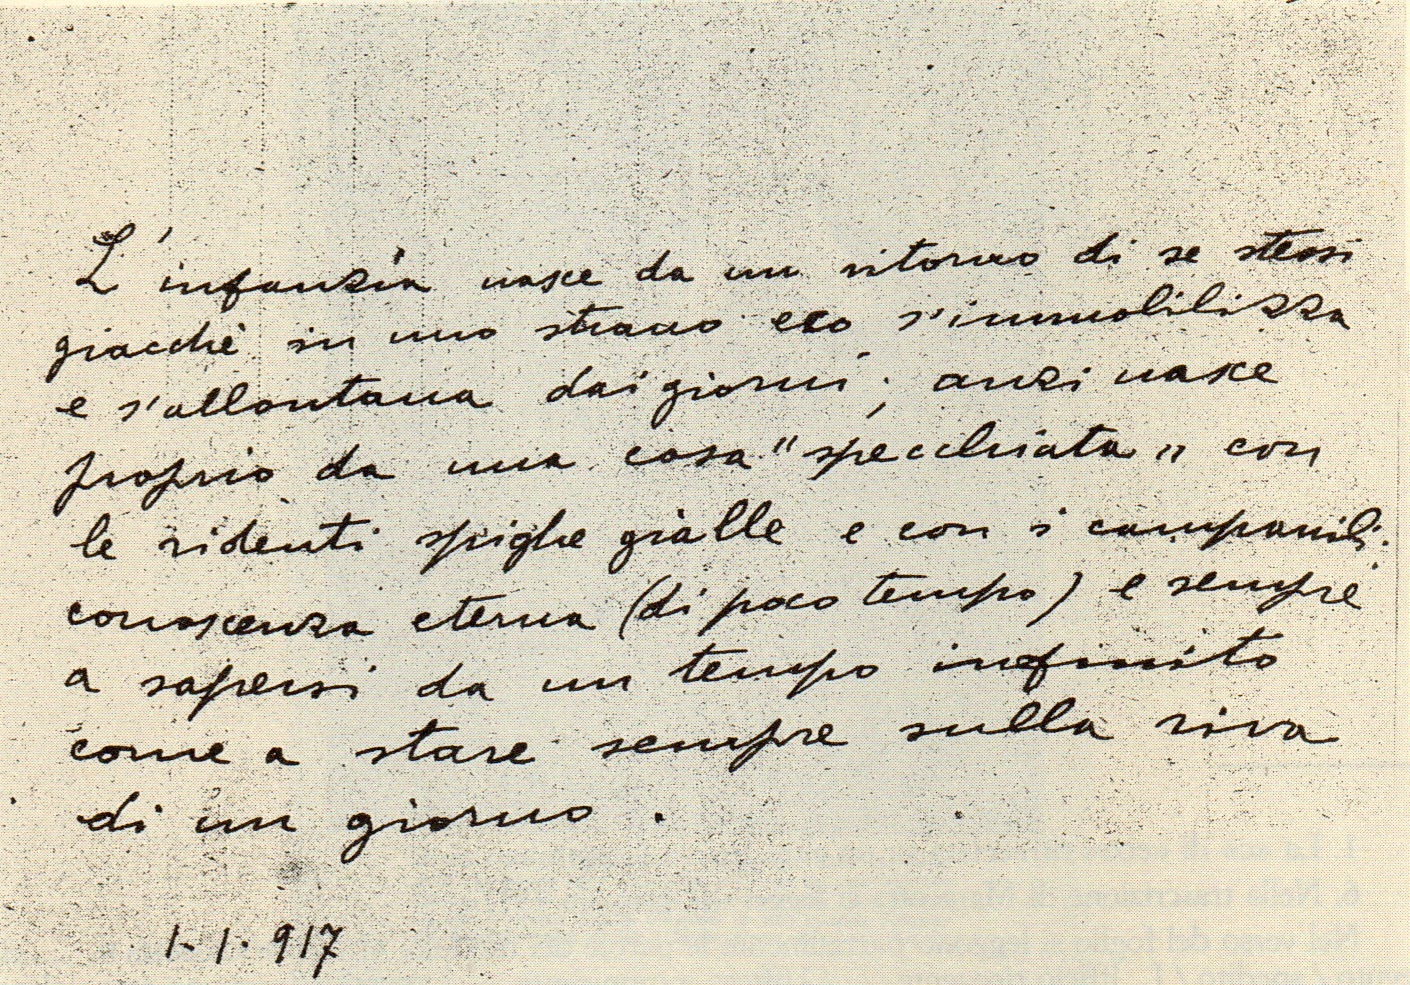 L'infanzia nasce da un ritorno di se stessi
giacchè in uno strano eco s'immobilizza
e s'allontana dai giorni; anzi nasce
proprio da una cosa "specchiata" con
le ridenti spighe gialle e con i campanili:
conoscenza eterna (di poco tempo) e sempre
a sapersi da un tempo infinito
come a stare sempre sulla riva
di un giorno.
1.1.917